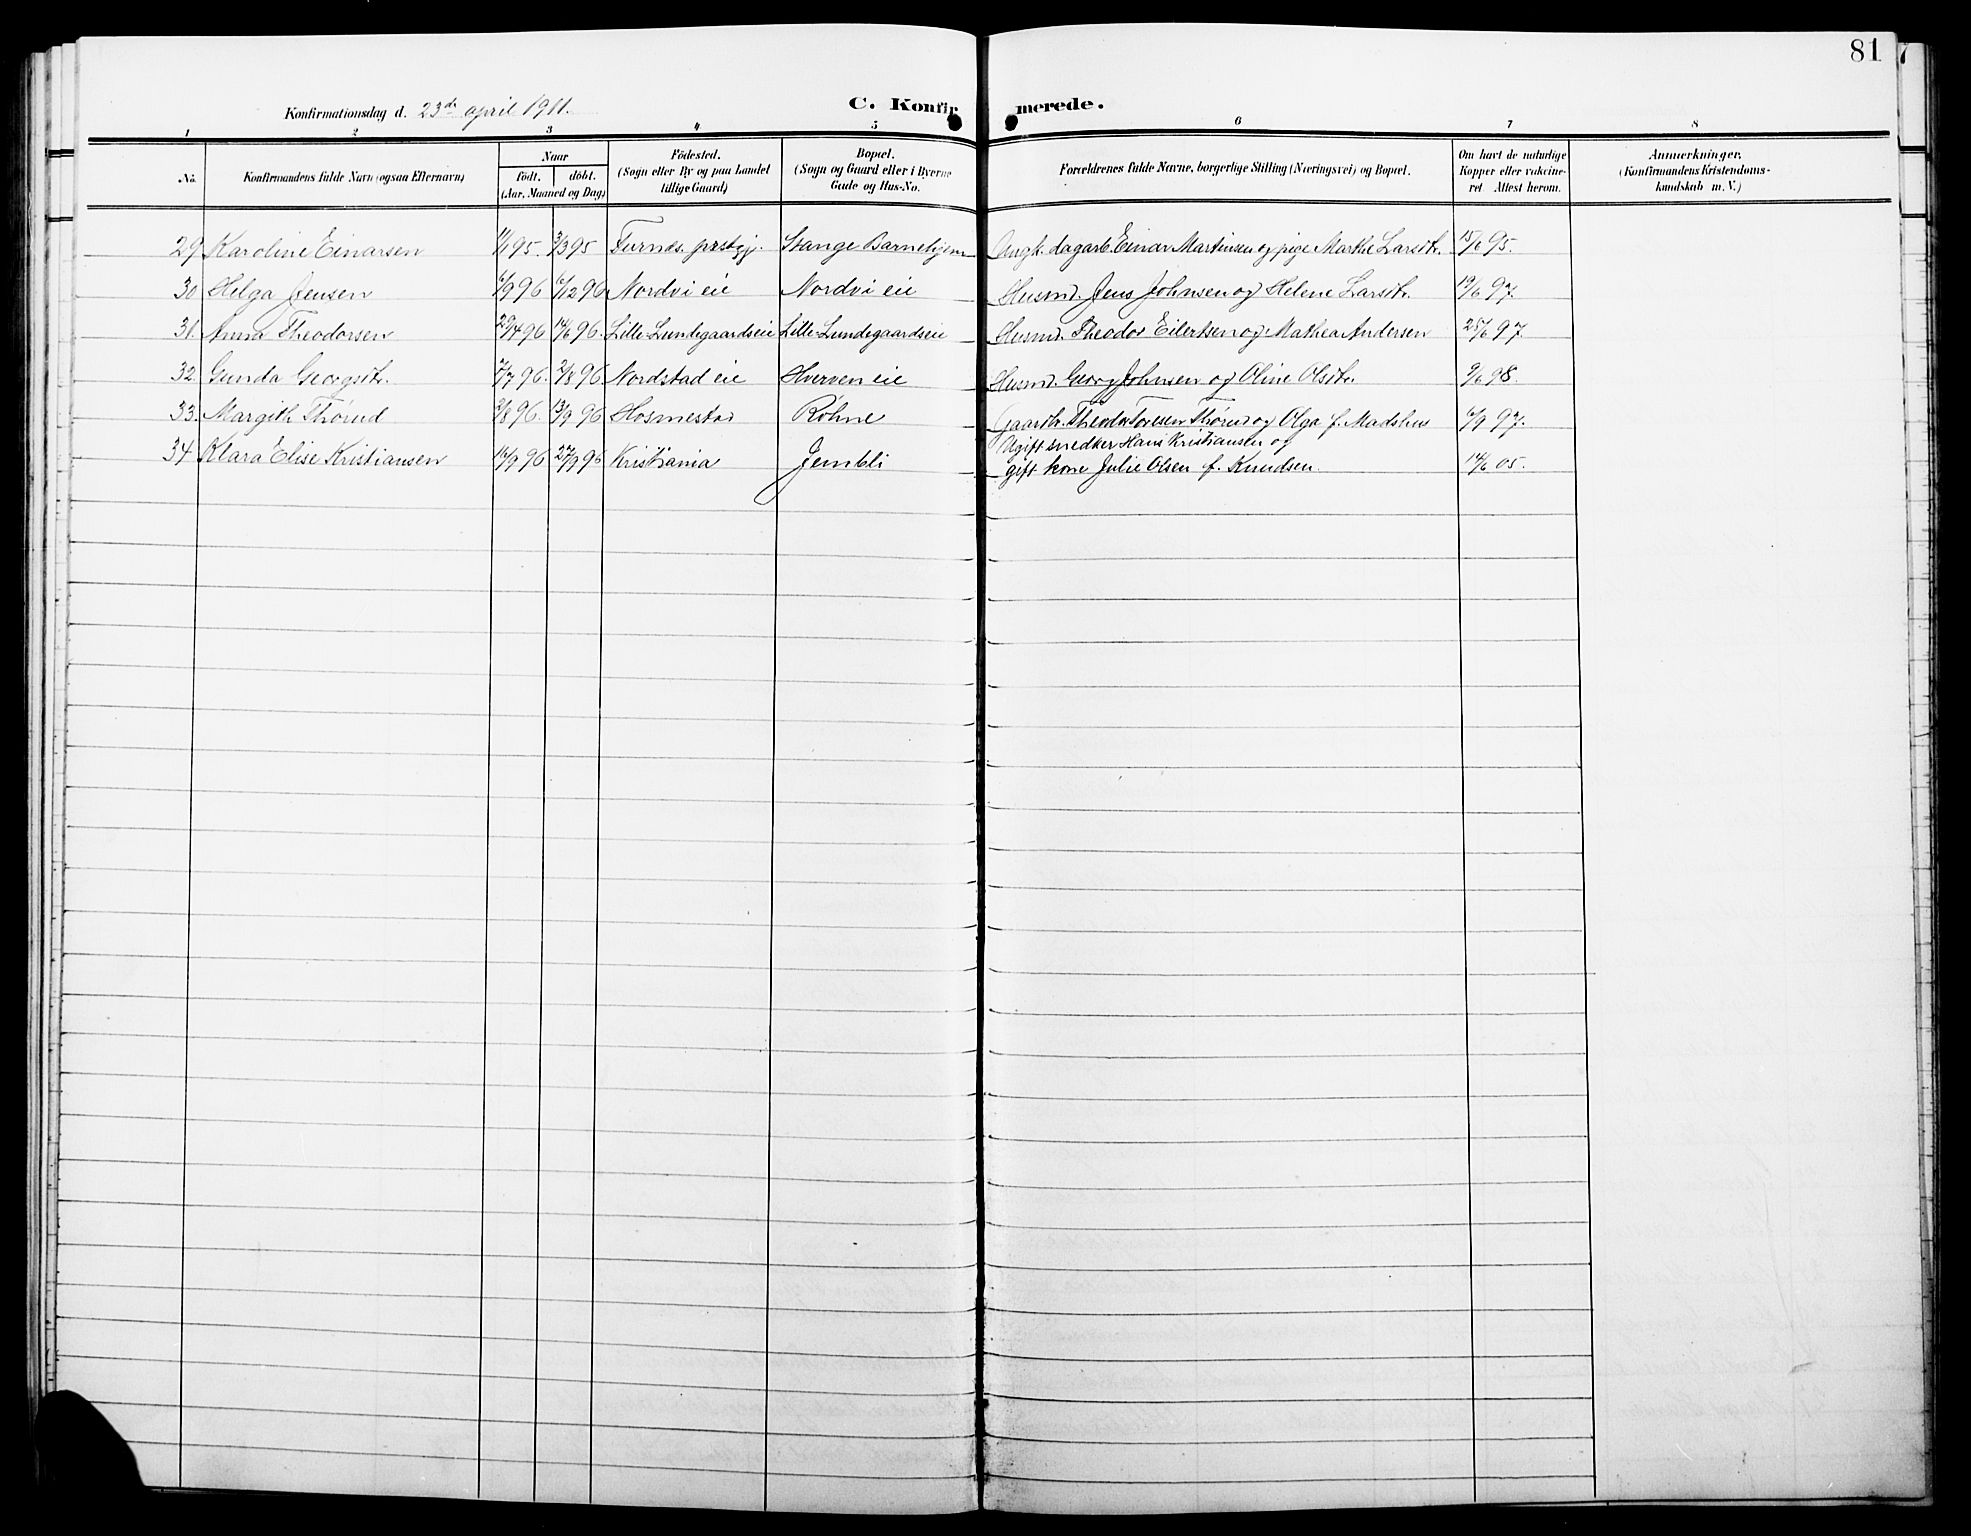 81
Konfirmationsdag d. 23de april 1911.
C. Konfirmerede.
1 2 3 4 5 6 7 8
No.
Konfirmandens fulde Navn (ogsaa Efternavn)
Naar
födt. döbt.
(Aar, Maaned og Dag)
Födested.
(Sogn eller By og paa Landet
tillige Gaard)
Bopæl.
(Sogn og Gaard eller i Byerne
Gade og Hus-No.
Forældrenes fulde Navne, borgerlige Stilling (Næringsvei) og Bopæl.
Om havt de naturlige
Kopper eller vakcine-
ret. Attest herom.
Anmærkninger.
(Konfirmandens Kristendoms-
kundskab m. V.)
29 Karoline Einarsen 11/1 95. 3/3 95 Furnes præstgj. Stange Barnehjem Angk. dagarb. Einar Martinsen og pige Marthe Larsdtr. 15/6 95.
30 Helga Jensen 6/9 96 6/12 96 Nordvi eie Nordvi eie Husmd. Jens Johnsen og Helene Larsdtr. 19/6 97.
31. Anna Theodorsen 29/4 96 14/6 96. Lille-Lundegaardseie Lille-Lundegaardseie Husmd. Theodor Eilertsen og Mathea Andersen 25/6 97
32. Gunda Georgsdtr. 7/7 96. 2/8 96 Nordstad eie Hverven eie Husmd. Georg Johnsen og Oline Olsdtr. 9/6 98.
33. Margith Thørud 3/8 96. 13/9 96 Hosmestad Røhne Gaardbr. Theodor Toresen Thørud og Olga f. Madshus 6/9 97.
34 Klara Elise Kristiansen 16/9 96 27/9 96 Kristiania Jembli Ugift snedker Hans Kristiansen og
gift kone Julie Olsen f. Knudsen. 14/6 05.